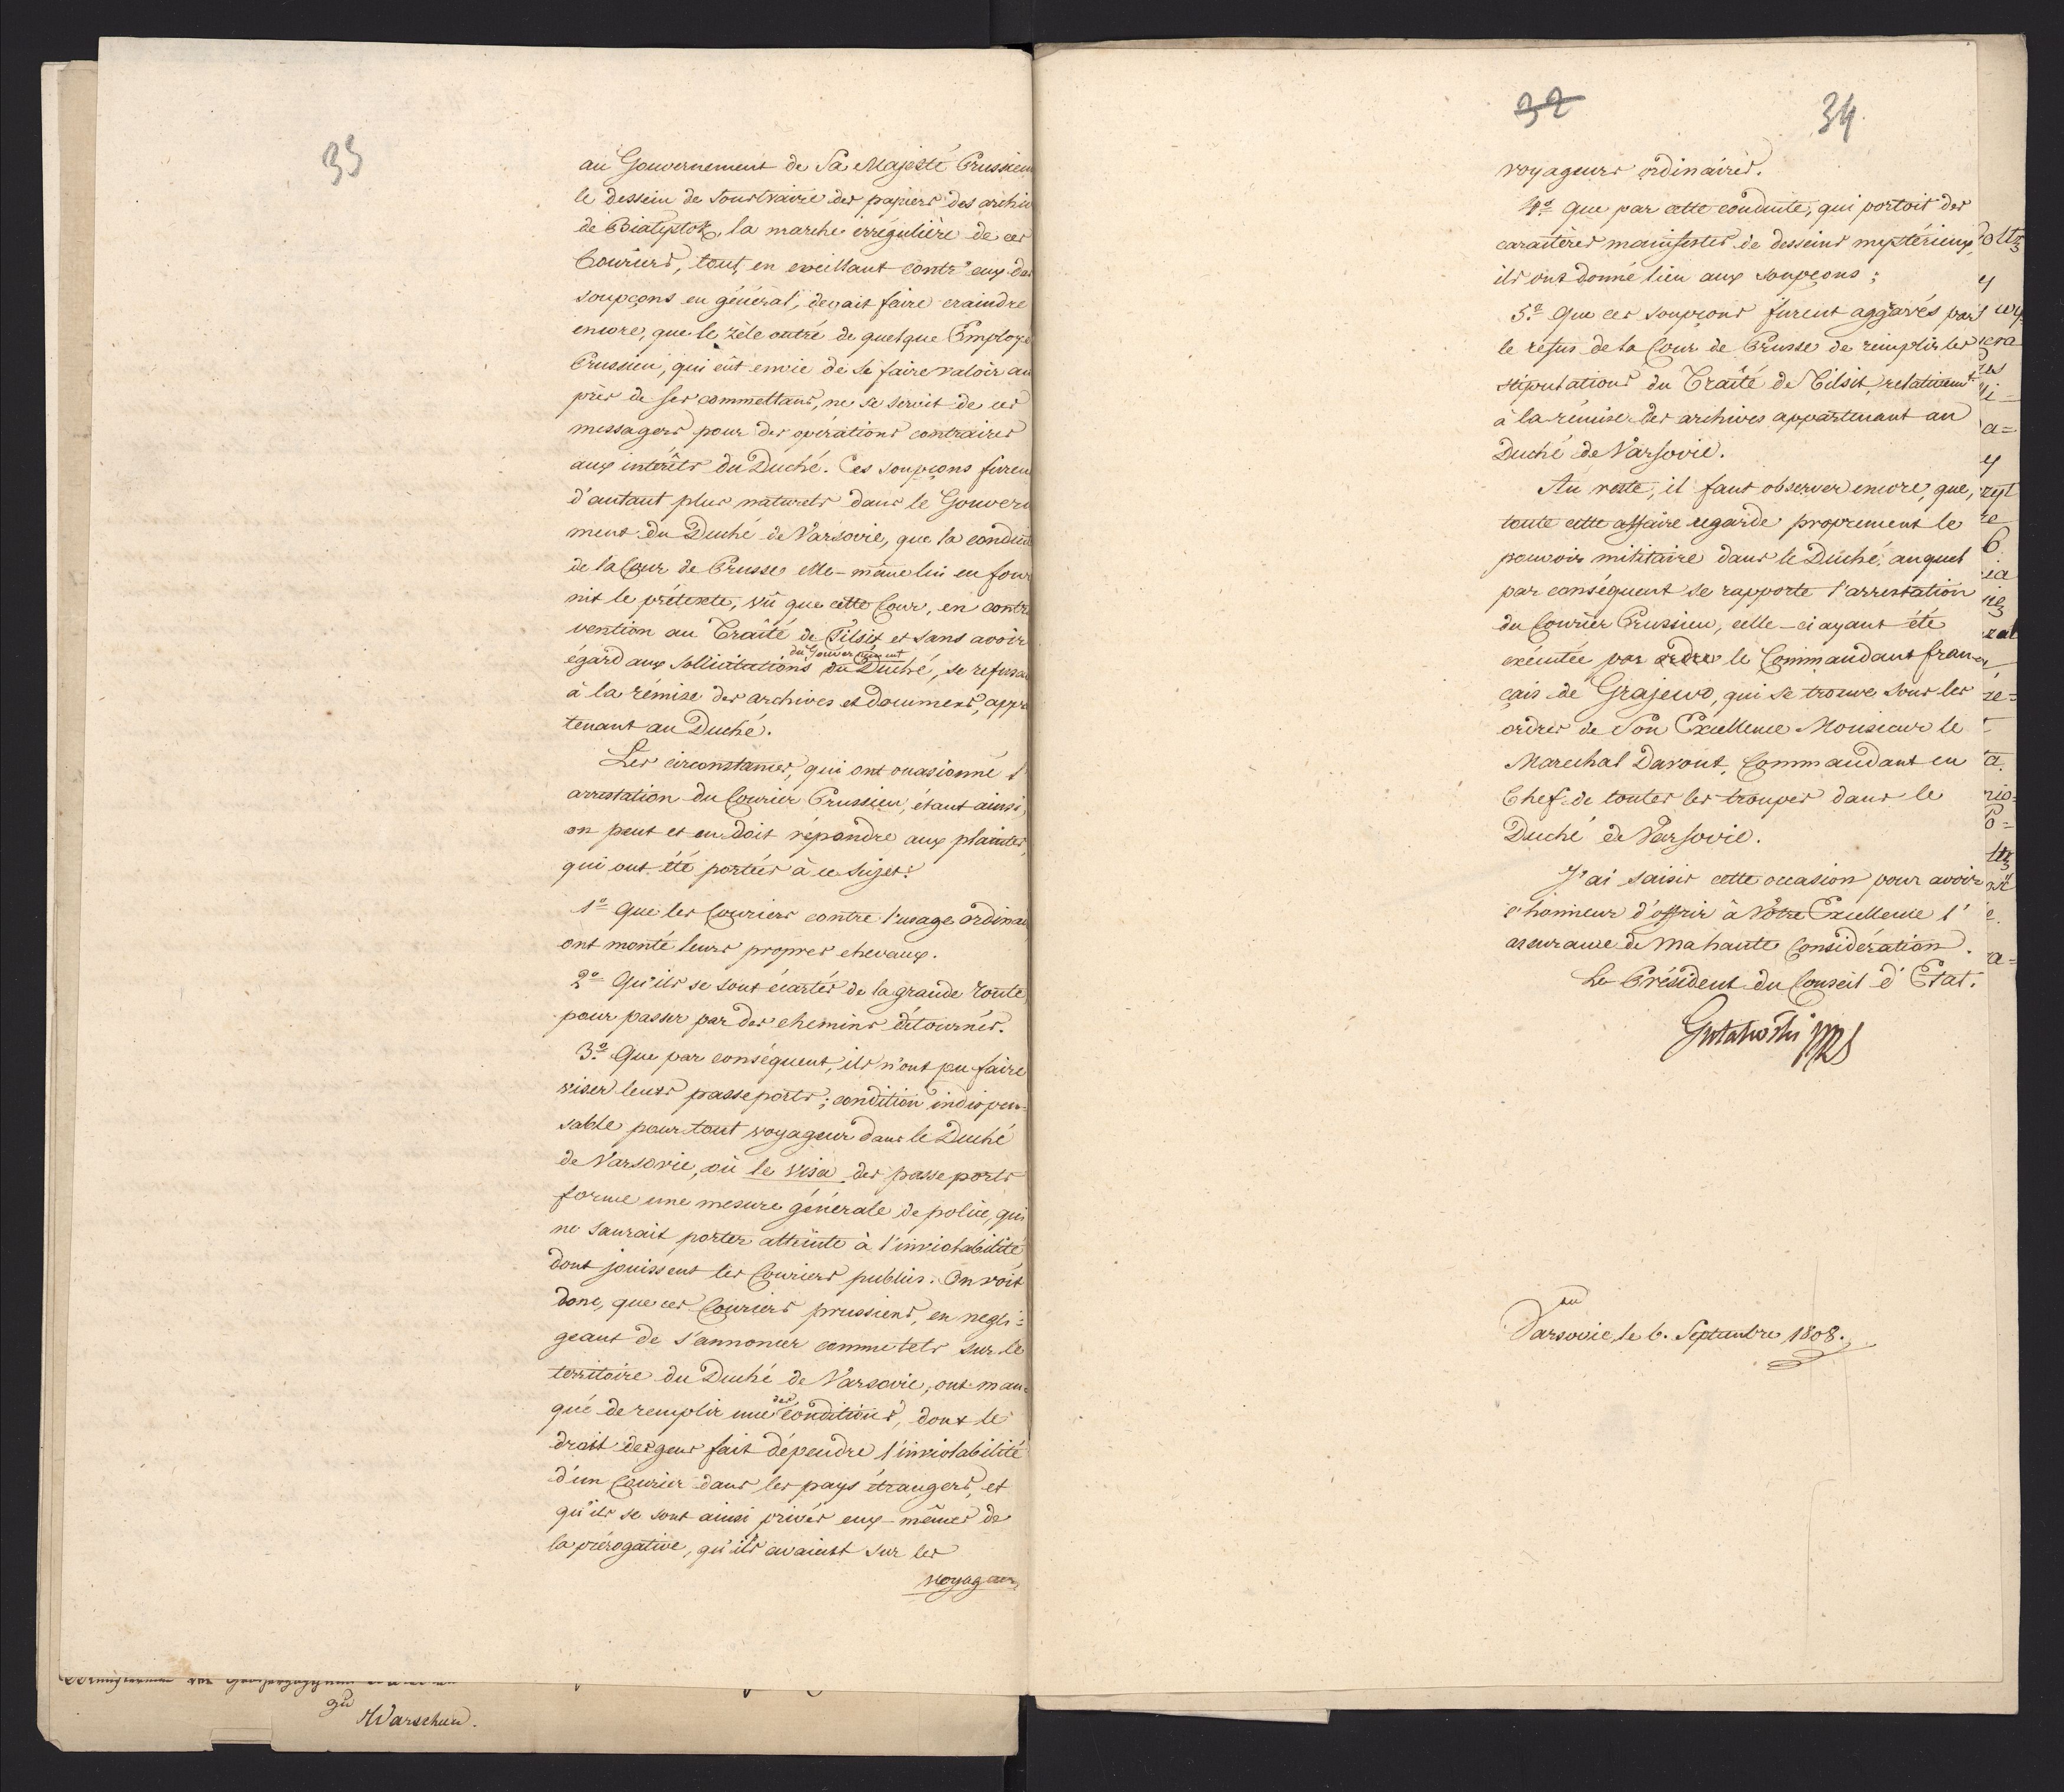 33
au Gouvernement de Sa Majesté Prussien
le dessein de soustraire des papiers des archiv
de Bialystok, la marche irrégulière de ces
Couriers, tout en eveillant contr'eux des
soupçons en général, devait faire craindre
encore, que le zèle outré de quelque Employé
Prussien, qui eût envie de se faire valoir au
près de ses commettans, ne se servit de ces
messagers pour des opérations contraires
aux intérêts du Duché. Ces soupçons furen
d'autant plus naturels dans le Gouvern
ment du Duché de Varsovie, que la conduite
de la Cour de Prusse elle-même lui en four
nit le prétexte, vû que cette Cour, en contra
vention au Traité de Tilsit et sans avoir
égard aux sollicitations du Gouvernement du Duché, se refusai
à la rémise des archives et documens, appar
tenant au Duché.
Les circonstances, qui ont occasionné l'
arrestation du Courier Prussien, étant ainsi,
on peut et on doit répondre aux plaintes,
qui ont été portées à ce sujet:
1º Que les Couriers contre l'usage ordinai
ont monté leurs propres chevaux.
2º Qu'ils se sont écartés de la grande route,
pour passer par des chemins détournés.
3º Que par conséquent, ils n'ont pu faire
viser leurs passeports; condition indispen-
sable pour tout voyageur dans le Duché
de Varsovie, où le visa des passeports
forme une mesure générale de police, qui
ne saurait porter atteinte à l'inviolabilité
dont jouissent les Couriers publics. On voit
donc, que ces Couriers prussiens, en negli-
geant de s'annoncer comme tels sur le
territoire du Duché de Varsovie, ont man-
qué de remplir une des conditions, dont le
droit des gens fait dépendre l'inviolabilité
d'un Courier dans les pays étrangers, et
qu'ils se sont ainsi privés eux-mêmes de
la prérogative, qu'ils avaient sur les
voyageurs
zu
Warschau.
32
34.
voyageurs ordinaires.
4º Que par cette conduite, qui portoit des
caractères manifestes de desseins mystérieux,
ils ont donné lieu aux soupçons;
5º Que ces soupçons furent aggravés par
le refus de la Cour de Prusse de remplir les
stipulations du Traité de Tilsit, relativement
à la rémise des archives appartenant au
Duché de Varsovie.
Au reste, il faut observer encore, que,
toute cette affaire regarde proprement le
pouvoir militaire dans le Duché, auquel
par conséquent se rapporte l'arrestation
du Courier Prussien, celle-ci ayant été
exécutée par ordre le Commandant fran-
çais de Grajewo, qui se trouve sous les
ordres de Son Excellence Monsieur le
Marechal Davout, Commandant en
Chef de toutes les troupes dans le
Duché de Varsovie.
J'ai saisis cette occasion pour avoir
l'honneur d'offrir à Votre Excellence l'
assurance de ma haute Considération.
Le Président du Conseil d'Etat.
Gutakowski
Varsovie, le 6. Septembre 1808.